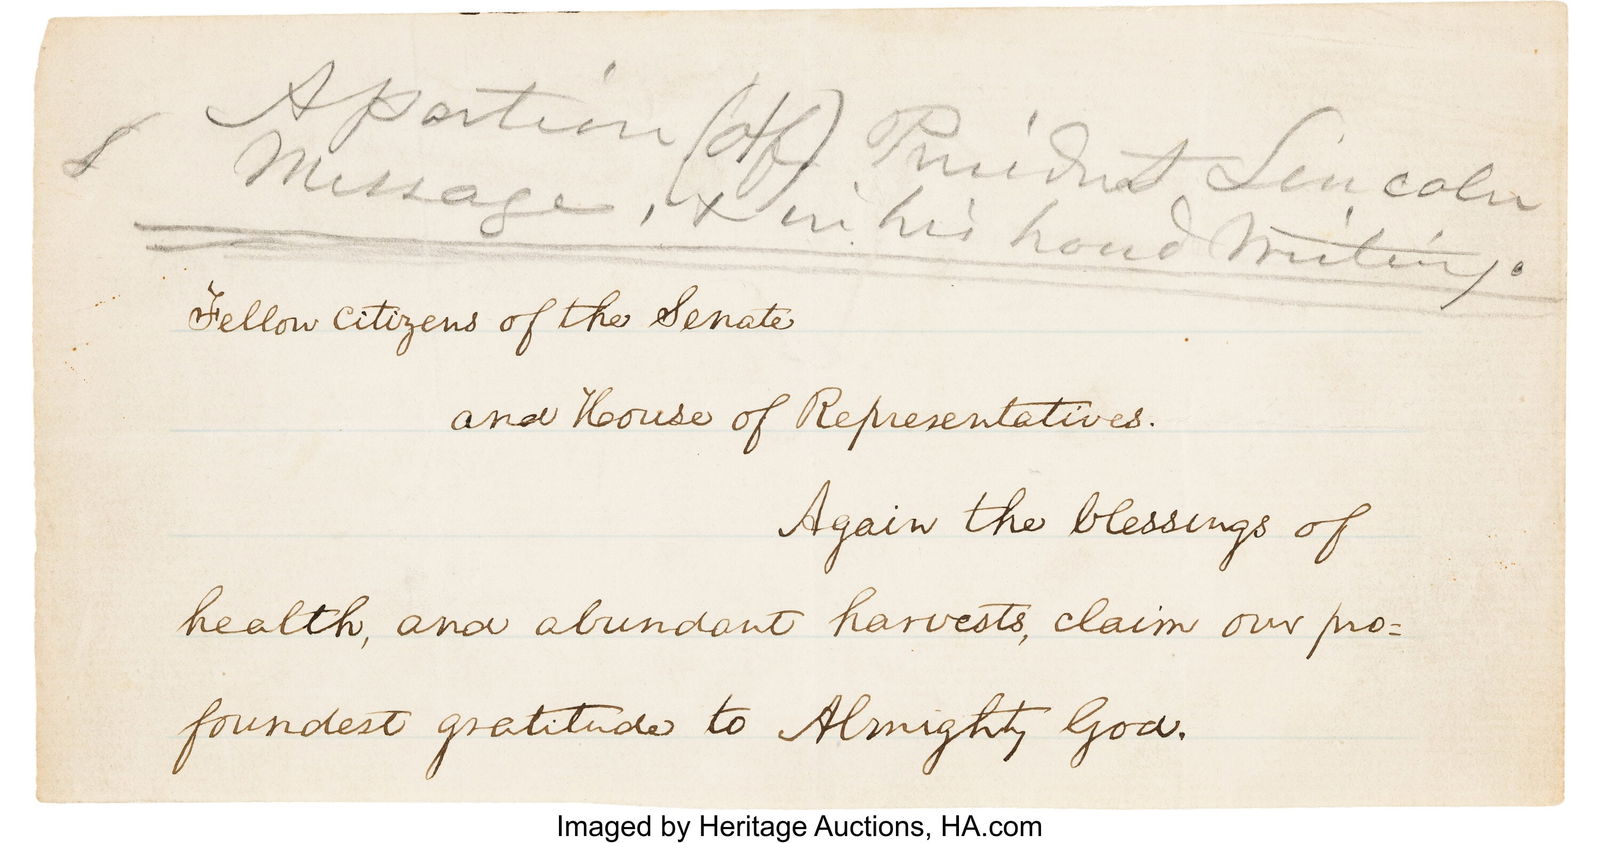 A portion (of) President Lincoln
Message, & in his hand Writing.
Fellow citizens of the Senate
and House of Representatives.
Again the blessings of
health, and abundant harvests, claim our pro=
foundest gratitude to Almighty God.
Imaged by Heritage Auctions, HA.com